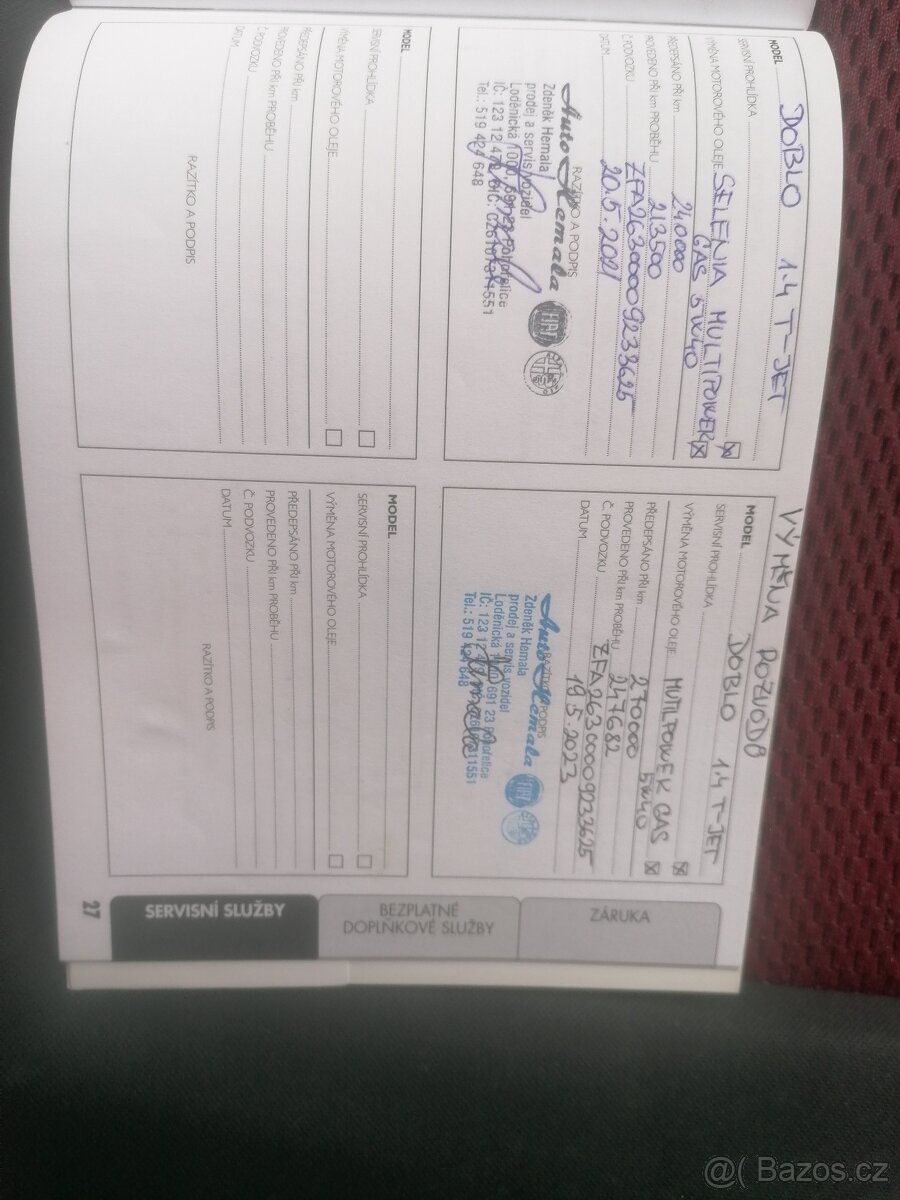 MODEL DOBLO 1.4 T-JET
SERVISNÍ PROHLÍDKA
VÝMĚNA MOTOROVÉHO OLEJE SELENIA MULTIPOWER
GAS 5W40
PŘEDEPSÁNO PŘI km 240000
PROVEDENO PŘI km PROBĚHU 213500
Č. PODVOZKU ZFA26300009233625
DATUM 20.5.2021
RAZÍTKO A PODPIS
Auto Hemala
Zdeněk Hemala
prodej a servis vozidel
Loděnická 1000, 691 23 Pohořelice
IČ: 123 12 47
Tel.: 519 424 648
FIAT
VÝMĚNA ROZVODŮ
MODEL DOBLO 1.4 T-JET
SERVISNÍ PROHLÍDKA
VÝMĚNA MOTOROVÉHO OLEJE MUTILPOWER GAS
5W40
PŘEDEPSÁNO PŘI km 270000
PROVEDENO PŘI km PROBĚHU 247682
Č. PODVOZKU ZFA26300009233625
DATUM 19.5.2023
RAZÍTKO A PODPIS
Auto Hemala
Zdeněk Hemala
prodej a servis vozidel
Loděnická 691 23 Pohořelice
IČ: 123 12
Tel.: 519 424 648
FIAT
MODEL
SERVISNÍ PROHLÍDKA
VÝMĚNA MOTOROVÉHO OLEJE
PŘEDEPSÁNO PŘI km
PROVEDENO PŘI km PROBĚHU
Č. PODVOZKU
DATUM
RAZÍTKO A PODPIS
MODEL
SERVISNÍ PROHLÍDKA
VÝMĚNA MOTOROVÉHO OLEJE
PŘEDEPSÁNO PŘI km
PROVEDENO PŘI km PROBĚHU
Č. PODVOZKU
DATUM
RAZÍTKO A PODPIS
ZÁRUKA
BEZPLATNÉ
DOPLŇKOVÉ SLUŽBY
SERVISNÍ SLUŽBY
27
@( Bazos.cz